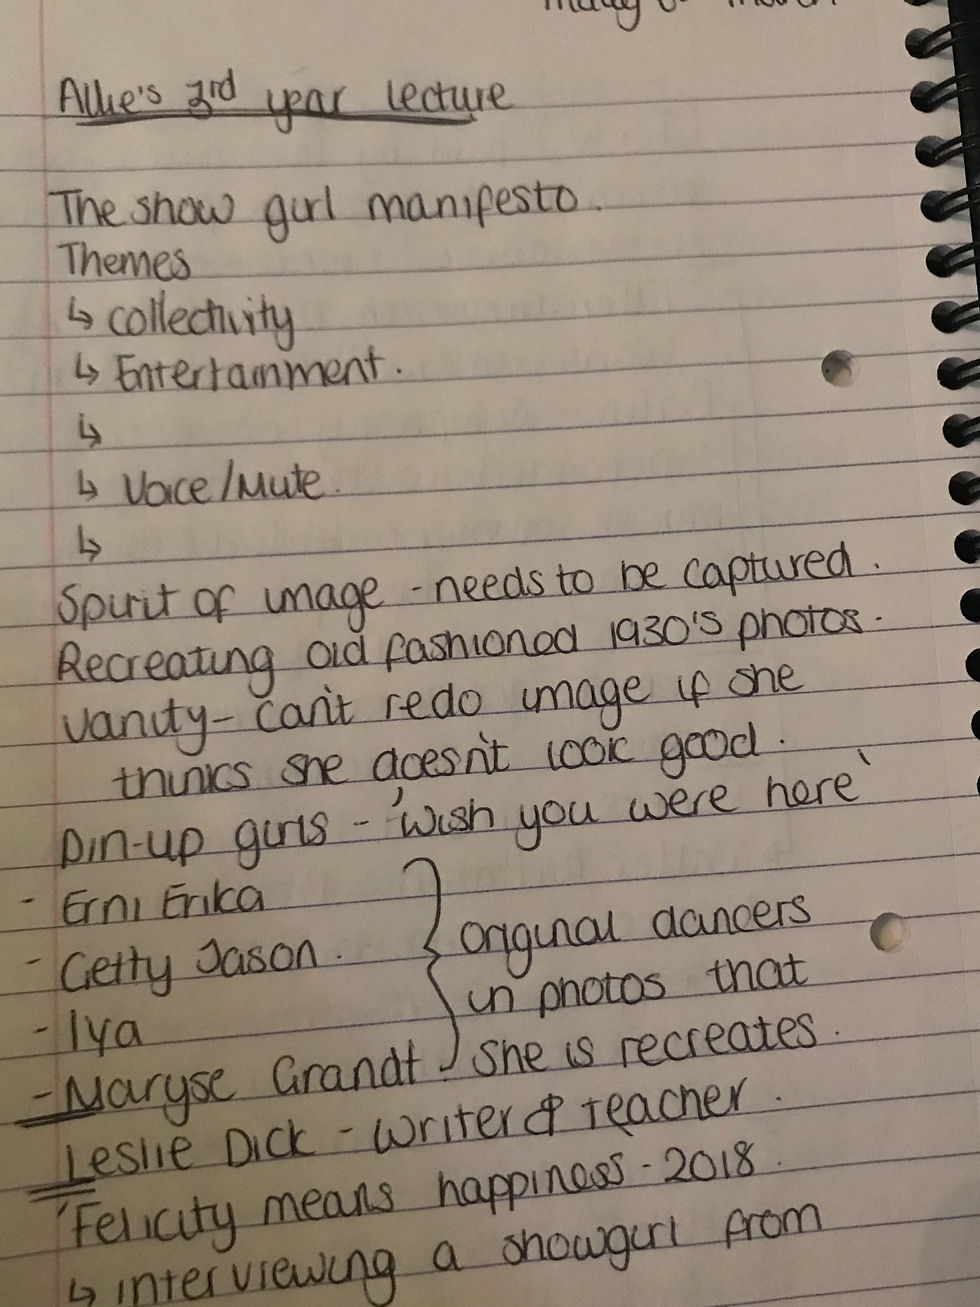 Allie's 3rd year lecture
The show girl manifesto.
Themes
↳ collectivity
↳ Entertainment.
↳
↳ Voice/Mute.
↳
Spirit of image - needs to be captured.
Recreating old fashioned 1930's photos.
Vanity - can't redo image if she
thinks she doesn't look good.
Pin-up girls - 'Wish you were here'
- Erni Erika
- Getty Jason.
- Iya
- Maryse Grandt.
original dancers
in photos that
she is recreates.
Leslie Dick - Writer & Teacher.
'Felicity means happiness - 2018.
↳ interviewing a showgirl from